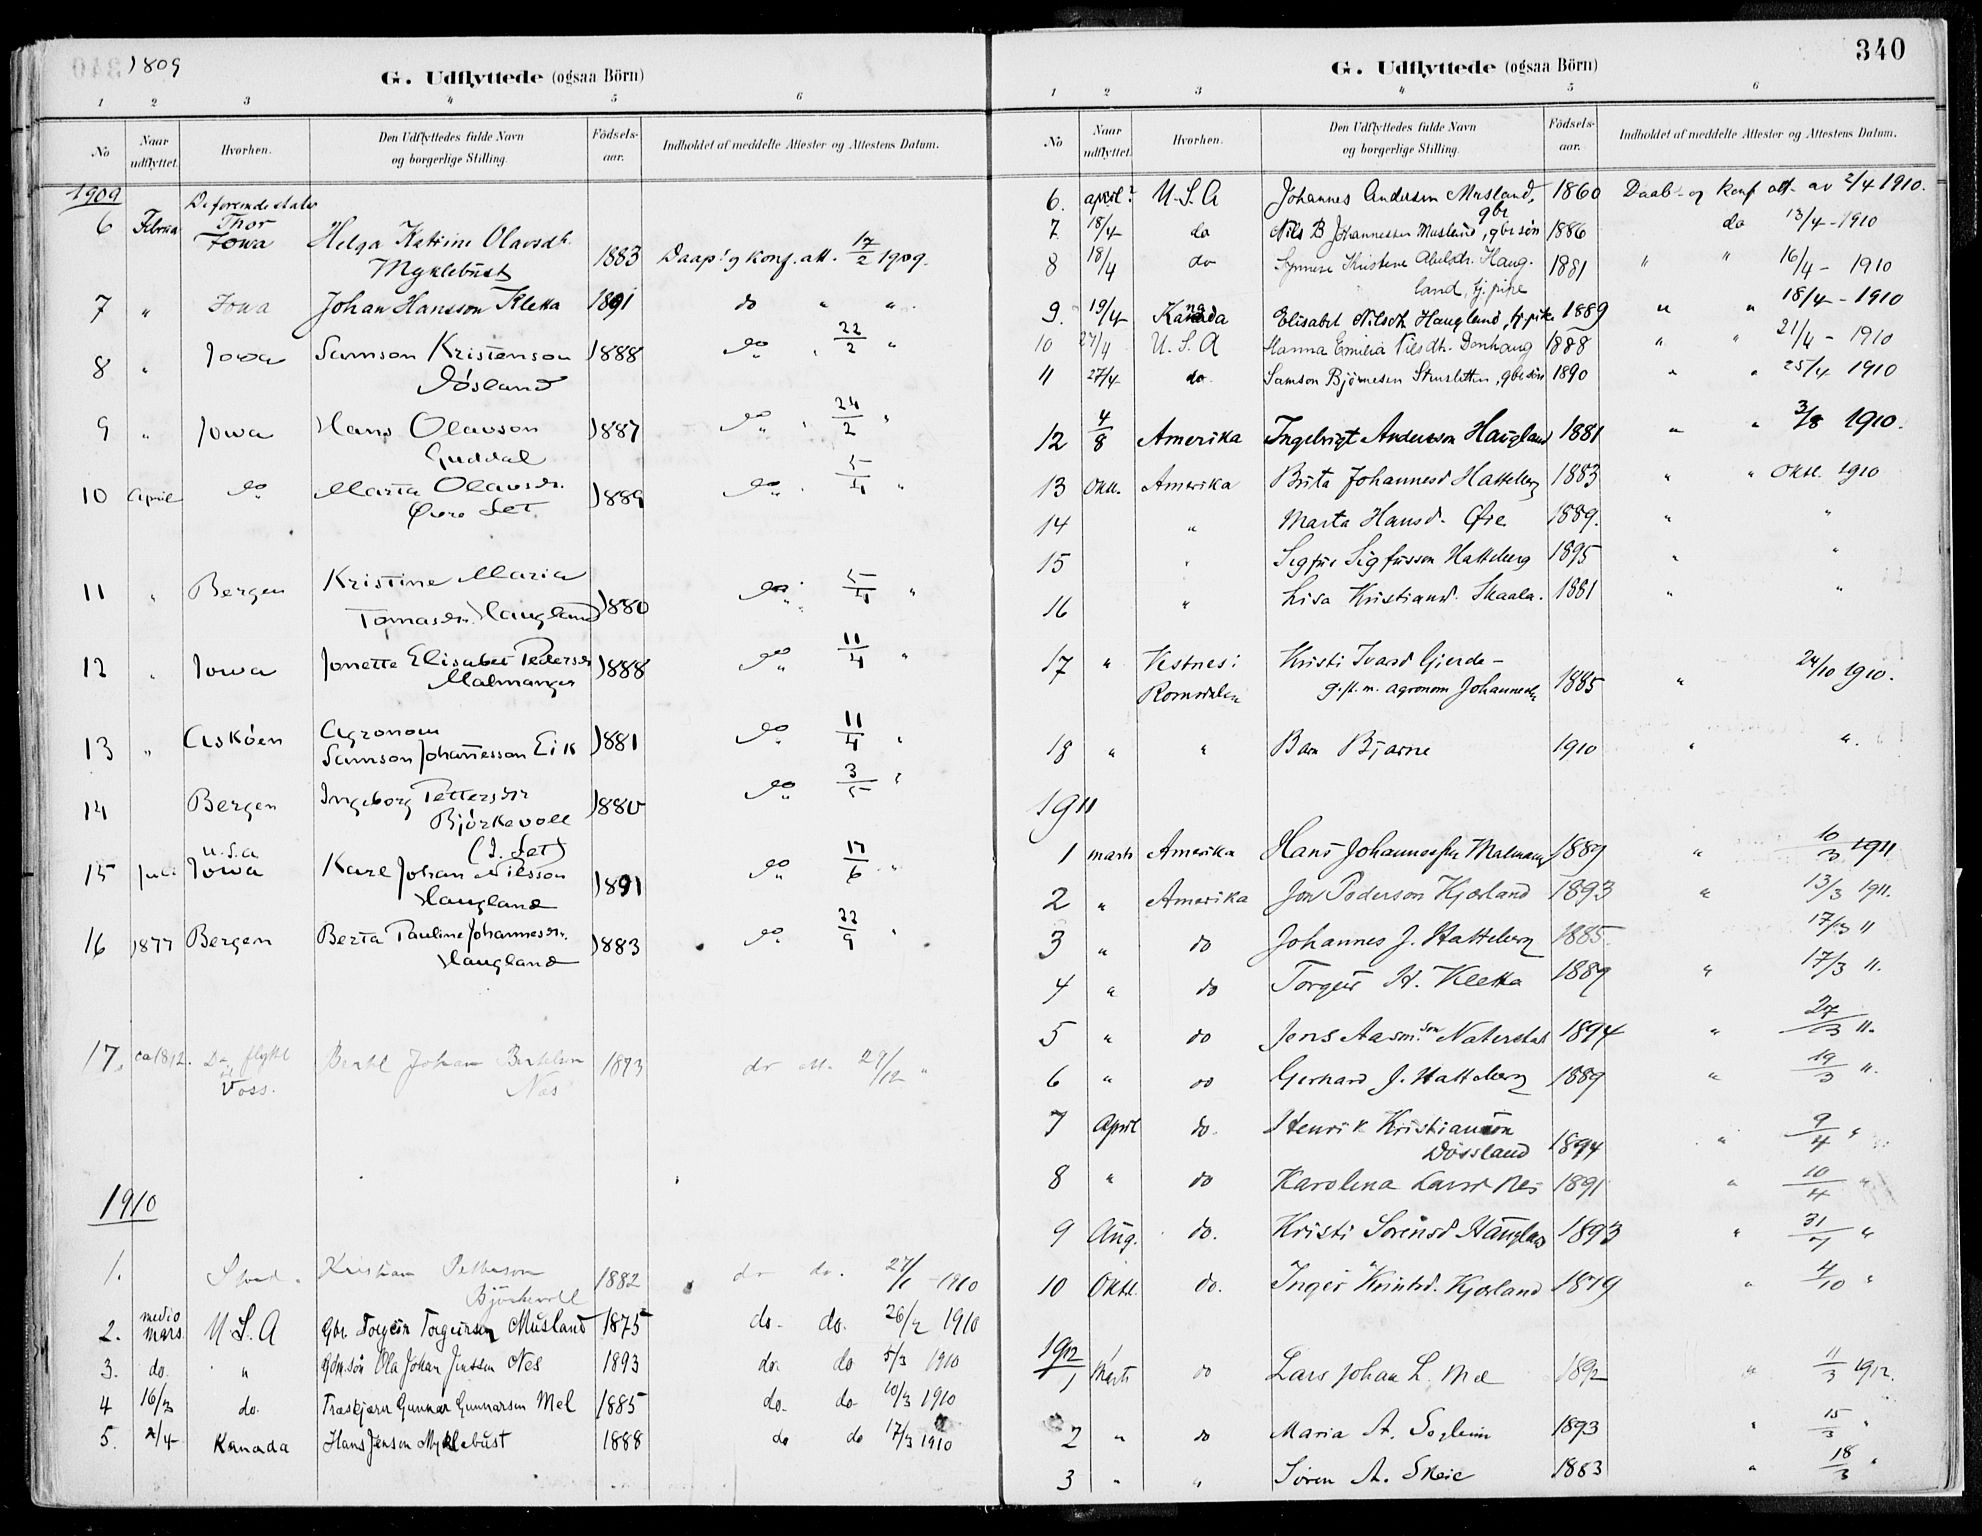 1809
G. Udflyttede (ogsaa Börn)
1 2 3 4 5 6
No Naar udflyttet. Hvorhen. Den Udflyttedes fulde Navn og borgerlige Stilling. Födsels-aar. Indholdet af meddelte Attester og Attestens Datum.
1909
De forenede stater
6 Februar Thor Iowa Helga Katrine Olavsdr. Myklebust 1883 Daaps og konf. att. 17/2 1909.
7 " Iowa Johan Hansson Kletta 1891 do " "
8 " Iowa Samson Kristenson Dösland 1888 do " 22/2 "
9 " Iowa Hans Olavson Guddal 1887 do " 24/2 "
10 April do Marta Olavsdr. Övre Set 1889 do " 5/4 "
11 " Bergen Kristine Maria Tomasdr. Haugland 1880 do " 5/4 "
12 " Iowa Jonette Elisabet Pedersdr Malmanger 1888 do " 11/4 "
13 " Asköen Agronom Samson Johannesson Eik 1881 do " 11/4 "
14 Bergen Ingeborg Pettersdr Björkevoll (I. Set) 1880 do " 3/5 "
15 Juli U.S.A Iowa Karl Johan Nilsson Haugland 1891 do " 17/6 "
16 1877 Bergen Berta Pauline Johannesdr. Haugland 1883 do " 22/9 "
17. ca 1892. flytt Voss. Bertel Johan Bertelsen Nes 1873 do att. 29/12 "
1910
1. Kristian Petterson Björkevoll 1882 do do. 27/1 - 1910
2. medio mars. U.S.A Gbr. Torgeir Torgeirsen Musland 1875 do. do. 26/2 1910
3. do. " gbr.sön Ola Johan Jenssen Nes 1893 do. do 5/3 1910
4 16/3 do. Træskjærer Gunnar Gunnarsen Mel 1885 do. do 10/3 1910
5. 2/4 Kanada Hans Jensen Myklebust 1888 do do 17/3 1910
340
G. Udflyttede (ogsaa Börn)
1 2 3 4 5 6
No Naar udflyttet. Hvorhen. Den Udflyttedes fulde Navn og borgerlige Stilling. Födsels-aar. Indholdet af meddelte Attester og Attestens Datum.
6. april? U.S.A Johannes Andersen Musland, gbr 1860 Daab- og konf att. av 2/4 1910.
7. 18/4 do Nils B Johannessen Musland, gbr sön 1886 do 13/4 - 1910
8 18/4 do Synneve Kristine Abelsdr. Haugland, tj. pike 1881 " " 16/4 - 1910
9. 19/4 Kanada Elisabet Nilsdtr Haugland, tj pike 1889 " " 18/4 - 1910
10 27/4 U.S.A Hanna Emilia Nilsdtr. Donhaug 1888 " " 21/4 - 1910
11 27/4 do. Samson Björnesen Strusletten, gbr sön 1890 " " 25/4 1910
12 4/8 Amerika Ingebrigt Anderson Haugland 1881 " " 3/8 1910.
13 Okt. Amerika Brita Johannesd Hatteberg 1883 " " Okt. 1910
14 " Marta Hansd. Øie 1889. " "
15 " Sigfus Sigfusson Hatteberg 1895 " "
16 " Lisa Kristiansd. Skaala. 1881 " "
17 " Vestnes i Romsdalen Kristi Ivarsd Gjerde - g.ft. m. agronom Johannesen 1885 " 24/10 1910.
18 " " Barn Bjarne 1910 " "
1911
1 marts Amerika Hans Johannessen Malmanger 1889 " 10/3 1911
2 " Amerika Jon Pederson Kjærland 1893 " 13/3 1911.
3 " do Johannes J. Hatteberg 1885 17/3 "
4 " do Torgeir H. Kletta 1889 " 17/3 ".
5 " do Jens Aasm.son Naterstad 1894 " 27/3 ".
6 " do Gerhard J. Hatteberg 1889 " 19/3 ".
7 April do. Henrik Kristianson Dössland 1894 " 9/4 "
8 " do Karolina Larsd Nes 1891 " 10/4 "
9 Aug. do. Kristi Sörensd Haugland 1893 " 31/7 "
10 Okt. do. Inger Kristd. Kjærland 1879 " 4/10 "
1912
1 Marts do Lars Johan L. Mel 1892 " 11/3 1912.
2 " do Maria A. Sogleim 1893 " 15/3 "
3 " " Sören A. Skeie 1883 " 18/3 "